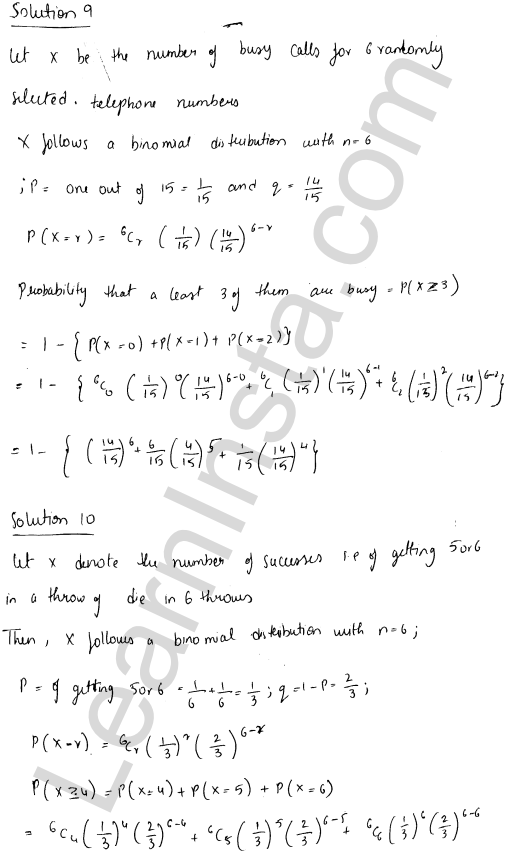 Solution 9
Let x be the number of busy calls for 6 randomly
selected. telephone numbers
X follows a binomial distribution with n=6
; P = one out of 15 = 1/15 and q = 14/15
P(X=r) = ⁶Cᵣ (1/15) (14/15)^(6-r)
Probability that a least 3 of them are busy = P(X≥3)
= 1 - {P(X=0) + P(X=1) + P(X=2)}
= 1 - {⁶C₀ (1/15)^0 (14/15)^(6-0) + ⁶C₁ (1/15)^1 (14/15)^(6-1) + ⁶C₂ (1/15)^2 (14/15)^(6-2)}
= 1 - {(14/15)^6 + 6/15 (4/15)^5 + 1/15 (14/15)^4}
Solution 10
Let x denote the number of successes i.e of getting 5 or 6
in a throw of die in 6 throws
Then, X follows a binomial distribution with n=6;
P = of getting 5 or 6 = 1/6 + 1/6 = 1/3 ; q = 1-P = 2/3 ;
P(X=r) = ⁶Cᵣ (1/3)^r (2/3)^(6-r)
P(X≥4) = P(X=4) + P(X=5) + P(X=6)
= ⁶C₄ (1/3)^4 (2/3)^(6-4) + ⁶C₅ (1/3)^5 (2/3)^(6-5) + ⁶C₆ (1/3)^6 (2/3)^(6-6)
LearnInsta.com